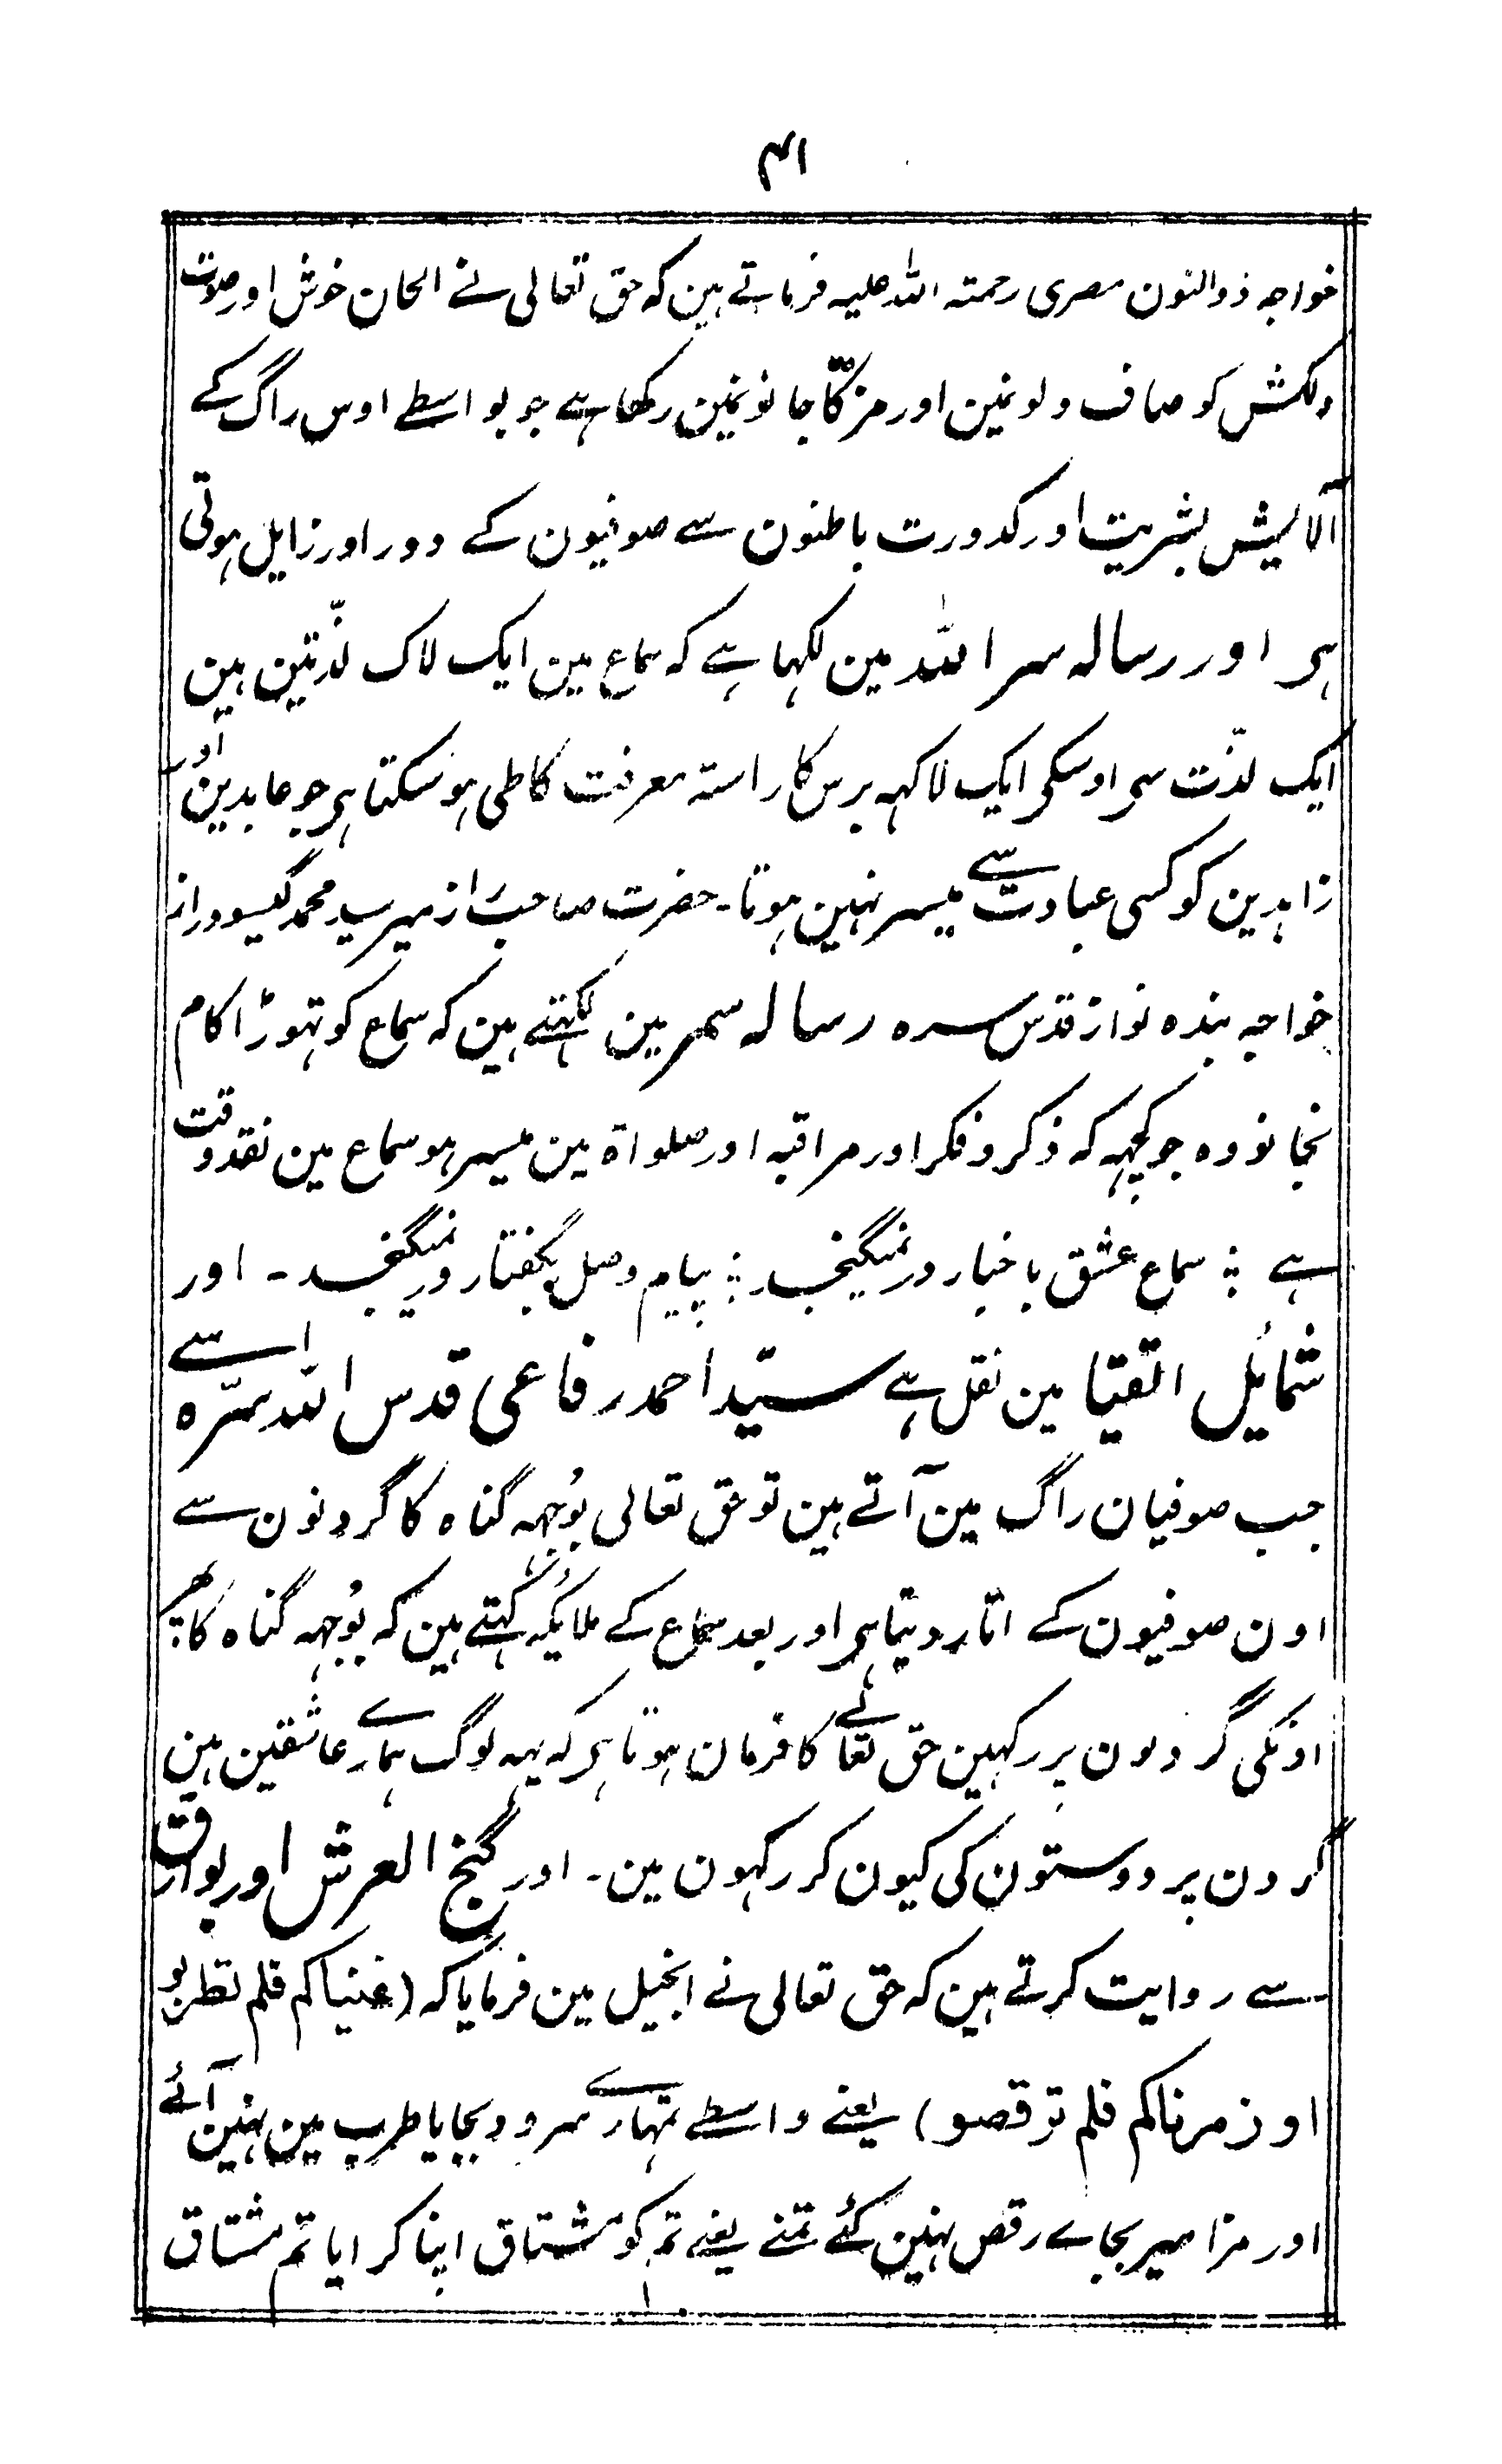 ۴۱
خواجہ ذوالنون مصری رحمتہ اللہ علیہ فرماتے ہین کہ حق تعالی نے الحان خوش اور صوت
دلکش کو صاف دلونمین اور مزکّا جانونمین رکھا ہے جو بواسطے اوس راگ کے
آلایش بشریت اور کدورت باطنون سے صوفیون کے دور اور زایل ہوتی
ہی اور رسالہ سر اللہ مین لکہا ہے کہ سماع مین ایک لاک لذّتین ہین
ایک لذّت سی اوسکی ایک لاکہہ برس کا راستہ معرفت کا طی ہو سکتا ہی جو عابدین اور
زاہدین کو کسی عبادت سے میسر نہین ہوتا۔ حضرت صاحب راز میر سید محمد گیسودراز
خواجہ بندہ نواز قدس سرہ رسالہ سمر مین لکہتے ہین کہ سماع کو تہوڑا کام
نجانو وہ جو کچہہ کہ ذکر و فکر اور مراقبہ اور صلواۃ مین میسر ہو سماع مین نقد وقت
ہے ؛ سماع عشق باخبار در نمیگنجد ؛ پیام وصل بگفتار در نمیگنجد ۔ اور
شمایُل اتقیا مین نقل ہے سیّد احمد رفاعی قدس اللہ سرّہ سے
جب صوفیان راگ مین آتے ہین تو حق تعالی بُوجہہ گناہ کا گردنون سے
اون صوفیون کے اتار دیتا ہی اور بعد سماع کے ملایکہ کہتے ہین کہ بُوجہہ گناہ کا پھر
اونکی گردنون پر رکہین حق تعالے کا فرمان ہوتا ہی کہ یہہ لوگ ہمارے عاشقین ہین
گردن پر دوستون کی کیون کر رکہون مین ۔ اور گنج العرش اور بوارق
سے روایت کرتے ہین کہ حق تعالی نے انجیل مین فرمایا کہ (غنیناکم فلم تطربو
او زمرناکم فلم ترقصو) یعنے واسطے تمہارے سرود بجایا طرب مین نہین آئے
اور مزامیر بجاے رقص نہین کئے تمنے یعنے تمکو مشتاق اپنا کرایا تم مشتاق